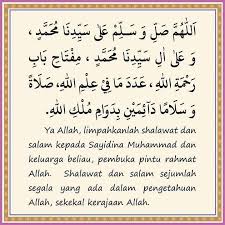 اَللّٰهُمَّ صَلِّ وَ سَلِّمْ عَلَى سَيِّدِنَا مُحَمَّدٍ ،
وَ عَلَى اٰلِ سَيِّدِنَا مُحَمَّدٍ ، مِفْتَاحِ بَابِ
رَحْمَةِ اللهِ، عَدَدَ مَا فِي عِلْمِ اللهِ، صَلَاةً
وَ سَلَامًا دَآئِمَيْنِ بِدَوَامِ مُلْكِ اللهِ.
Ya Allah, limpahkanlah shalawat dan
salam kepada Sayidina Muhammad dan
keluarga beliau, pembuka pintu rahmat
Allah. Shalawat dan salam sejumlah
segala yang ada dalam pengetahuan
Allah, sekekal kerajaan Allah.